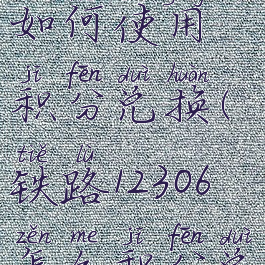 如何使用
jī fēn duì huàn
积分兑换(
tiě lù
铁路12306
zěn me jī fēn duì
怎么积分兑